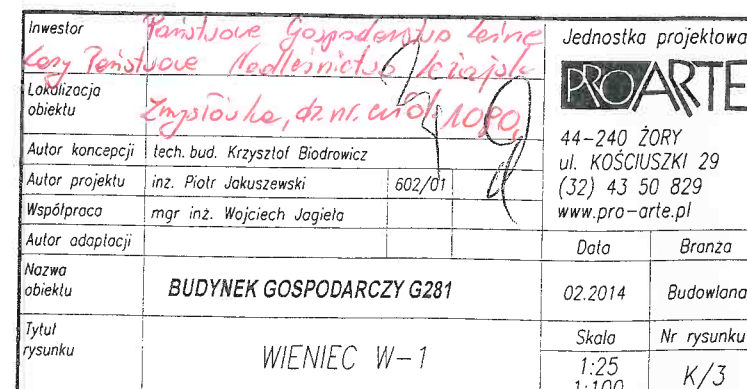 Inwestor
Państwowe Gospodarstwo Leśne
Lasy Państwowe Nadleśnictwo Leżajsk
Lokalizacja
obiektu
Zmysłówka, dz. nr. ewid. 1080,
Autor koncepcji tech. bud. Krzysztof Biodrowicz
Autor projektu inż. Piotr Jakuszewski 602/01
Współpraca mgr inż. Wojciech Jagieła
Autor adaptacji
Nazwa
obiektu
BUDYNEK GOSPODARCZY G281
Tytuł
rysunku
WIENIEC W-1
Jednostka projektowa
PROARTE
44-240 ŻORY
ul. KOŚCIUSZKI 29
(32) 43 50 829
www.pro-arte.pl
Data Branża
02.2014 Budowlana
Skala Nr rysunku
1:25 K/3
1:100